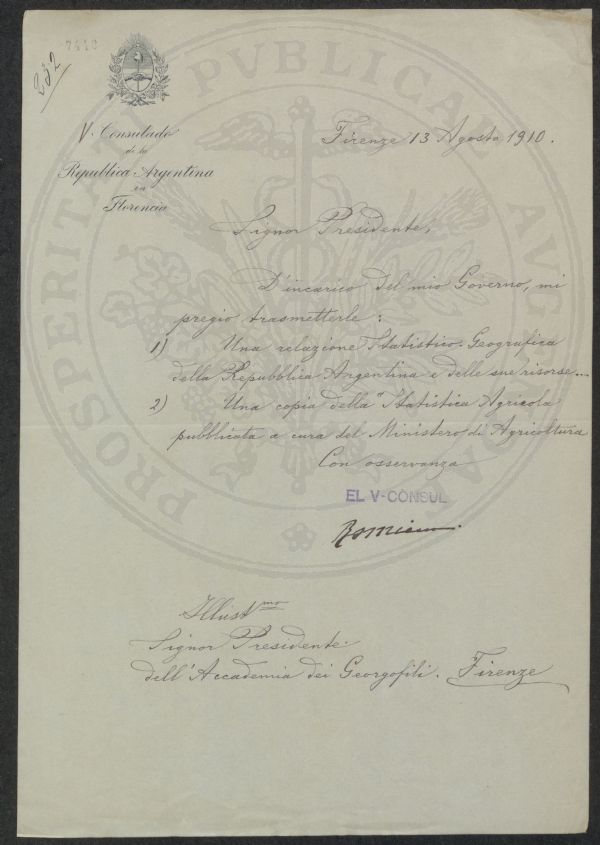 7412
232
V. Consulado
de la
Republica Argentina
en
Florencia
Firenze 13 Agosto 1910.
Signor Presidente,
D'incarico del mio Governo, mi
pregio trasmetterle:
1) Una relazione Statistico-Geografica
della Repubblica Argentina e delle sue risorse...
2) Una copia della Statistica Agricola
pubblicata a cura del Ministero di Agricoltura
Con osservanza
EL V-CONSUL
Illust mo
Signor Presidente
dell'Accademia dei Georgofili. Firenze
PROSPERITATI PVBLICAE AVGENDAE